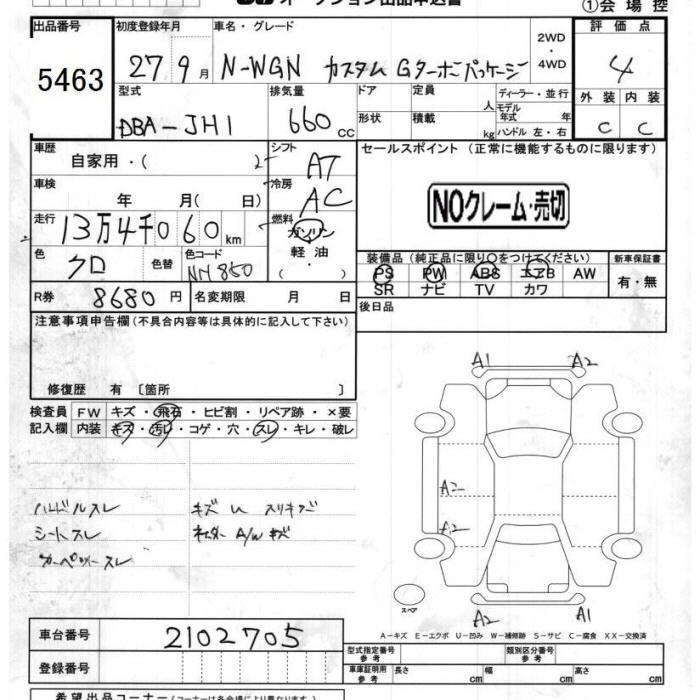 オークション出品申込書
①会場控
出品番号 5463
初度登録年月 27 9月
車名・グレード N-WGN カスタム Gターボパッケージ
2WD・4WD
評価点 4
外装 内装
C C
型式 DBA-JH1
排気量 660cc
ドア 定員 人
形状 積載 kg
ディーラー・並行
モデル年式 年式
ハンドル 左・右
車歴 自家用・( )
シフト AT
車検 年 月( 日)
冷房 AC
走行 13万4千060km
燃料 ガソリン
軽油
・( )
色 クロ 色替
色コード NH850
R券 8680円 名変期限 月 日
セールスポイント(正常に機能するものに限ります)
NOクレーム・売切
装備品(純正品に限り○をつけてください)
PS PW ABS エアB AW
SR ナビ TV カワ
新車保証書
有・無
後日品
注意事項申告欄(不具合内容等は具体的に記入して下さい)
修復歴 有〔箇所 〕
検査員 FW キズ・飛石・ヒビ割・リペア跡・×要
記入欄 内装 キズ・汚レ・コゲ・穴・スレ・キレ・破レ
ハンドルスレ
シートスレ
カーペットスレ
キズ スリキズ
A/W キズ
A1 A2
A2
A2
A2 A1
スペア
A−キズ E−エクボ U−凹み W−補修跡 S−サビ C−腐食 XX−交換済
車台番号 2102705
登録番号
型式指定番号 参考
類別区分番号 参考
車庫証明用 参考 長さ cm 幅 cm 高さ cm
希望出品コーナー(コーナーは各会場により異なります)